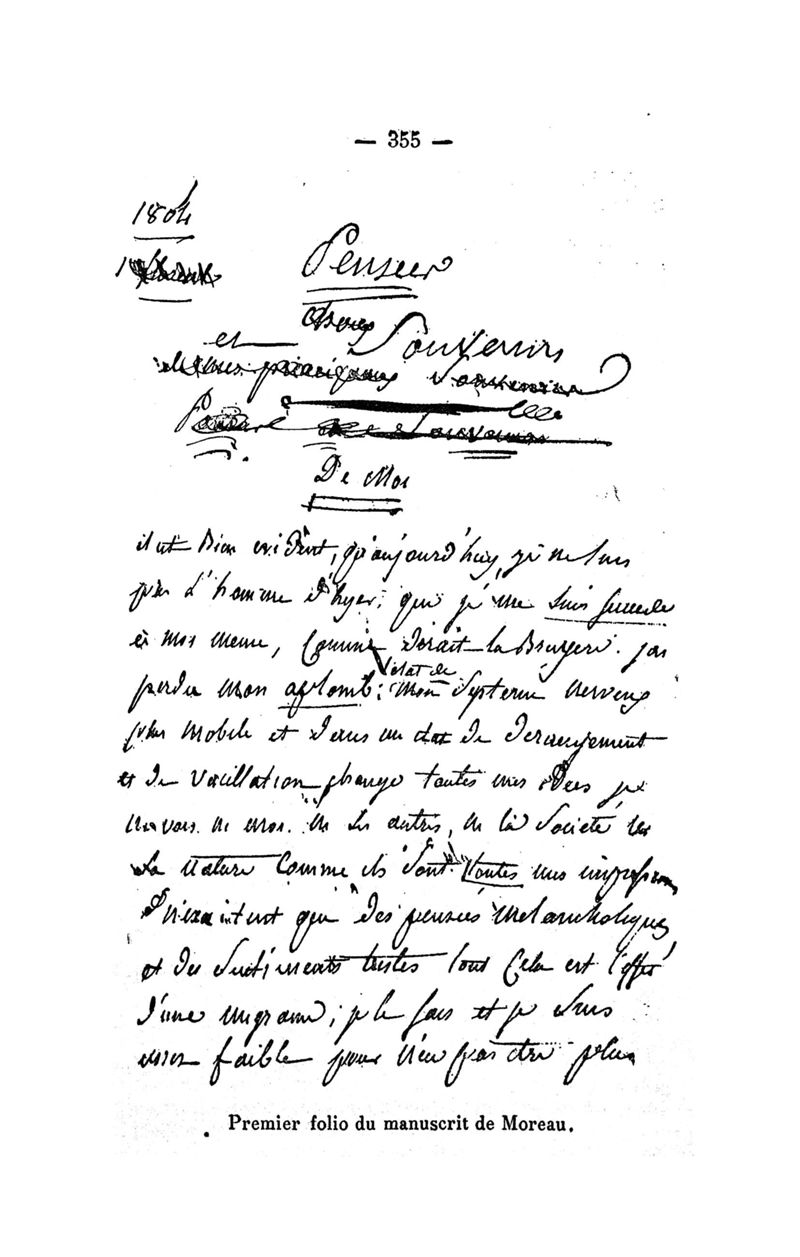 — 355 —
1804
Pensees
et Souvenirs
De Moi
il est Bien evident, qu'aujourd'huy, je ne suis
pas L'homme d'hyer; que je me suis succede
à moi meme, comme dirait la Bruyere. j'ai
perdu mon aplomb: l'etat de mon systeme nerveux
plus mobile et dans un etat de derangement
et de vacillation change toutes mes idées je
ne vois ni moi. ni les autres, ni la Societé ni
La Nature Comme ils sont. toutes mes impressions
n'excitent que des pensées melancholiques
et des sentiments tristes tout Cela est l'effet
d'une migraine; je le sais et je suis
assez faible pour n'en pas être plus
Premier folio du manuscrit de Moreau.